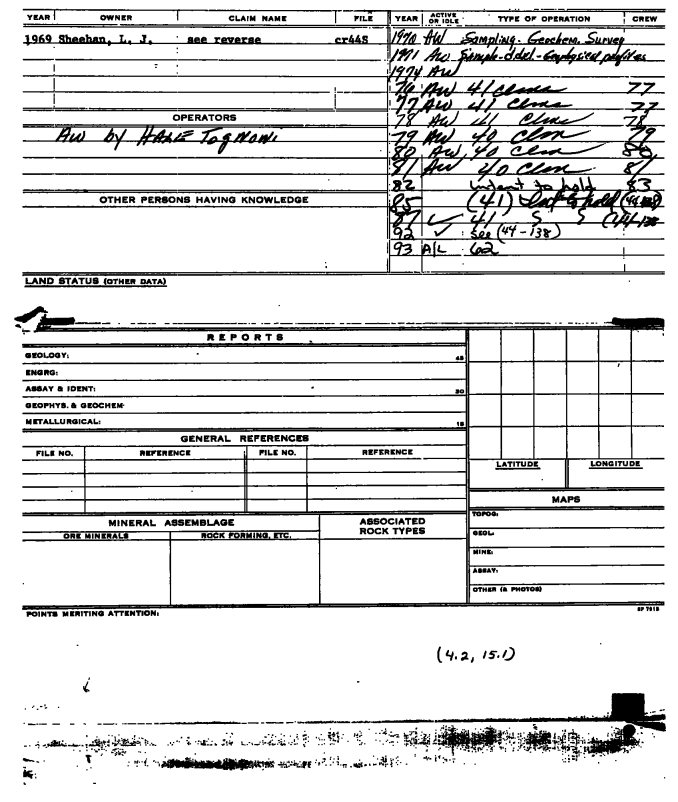 YEAR OWNER CLAIM NAME FILE
1969 Sheehan, L. J. see reverse cr44S
OPERATORS
AW by HALE Tognoni
OTHER PERSONS HAVING KNOWLEDGE
LAND STATUS (OTHER DATA)
YEAR ACTIVE OR IDLE TYPE OF OPERATION CREW
1970 AW Sampling - Geochem. Survey
1971 AW Sample - - Geophysical profiles
1974 AW
76 AW 41 clms 77
77 AW 41 clms 77
78 AW 41 clms 78
79 AW 40 clm 79
80 AW, 40 clm 80
81 AW 40 clm 81
82 intent to hold 83
85 (41) to hold (44-138)
87 ✓ 41 S S (44-138
92 ✓ See (44-138)
93 A/L 62
REPORTS
GEOLOGY: 45
ENGRG:
ASSAY & IDENT: 30
GEOPHYS. & GEOCHEM
METALLURGICAL: 15
GENERAL REFERENCES
FILE NO. REFERENCE FILE NO. REFERENCE
MINERAL ASSEMBLAGE
ORE MINERALS ROCK FORMING, ETC.
ASSOCIATED ROCK TYPES
LATITUDE LONGITUDE
MAPS
TOPOG:
GEOL:
MINE:
ASSAY:
OTHER (& PHOTOS)
POINTS MERITING ATTENTION: SP 7915
(4.2, 15.1)